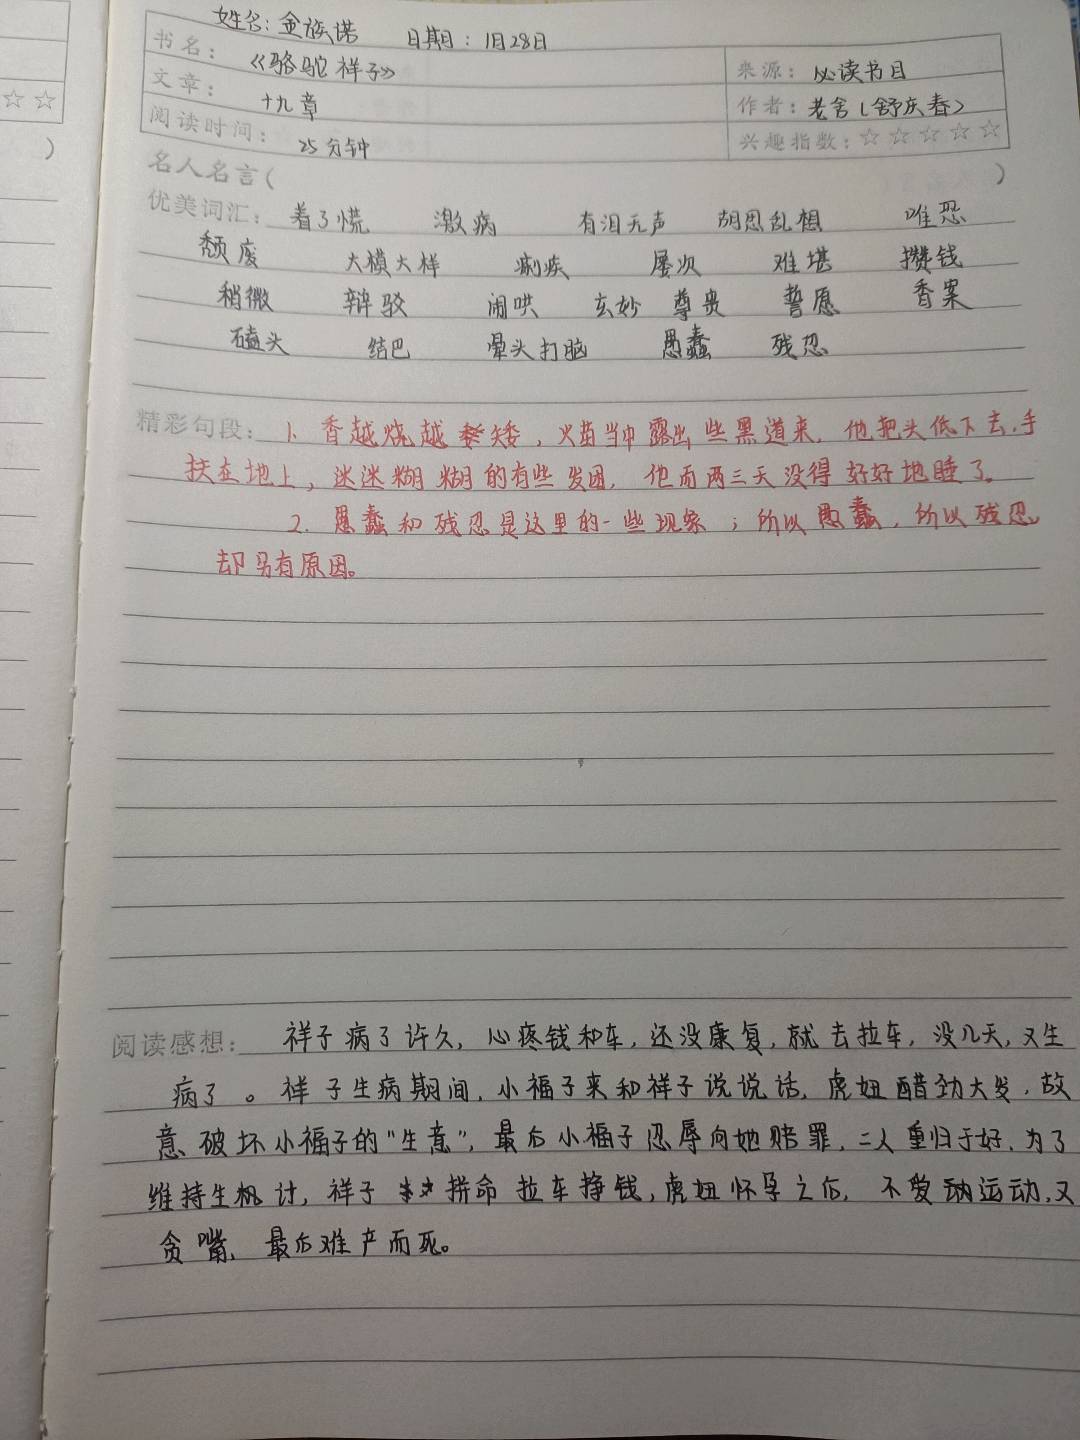 姓名：金族诺 日期：1月28日
书名：《骆驼祥子》 来源：必读书目
文章：十九章 作者：老舍（舒庆春）
阅读时间：25分钟 兴趣指数：☆☆☆☆☆
名人名言（ ）
优美词汇：着了慌 激病 有泪无声 胡思乱想 唯恐
颓废 大模大样 痢疾 屡次 难堪 攒钱
稍微 辩驳 闹哄 玄妙 尊贵 誓愿 香案
磕头 结巴 晕头打脑 愚蠢 残忍
精彩句段：1、香越烧越矮，火苗当中露出些黑道来，他把头低下去，手
扶在地上，迷迷糊糊的有些发困，他而两三天没得好好地睡了。
2、愚蠢和残忍是这里的一些现象；所以愚蠢，所以残忍
却另有原因。
阅读感想：祥子病了许久，心疼钱和车，还没康复，就去拉车，没几天，又生
病了。祥子生病期间，小福子来和祥子说说话，虎妞醋劲大发，故
意破坏小福子的“生意”，最后小福子忍辱向她赔罪，二人重归于好，为了
维持生机计，祥子拼命拉车挣钱，虎妞怀孕之后，不爱运动，又
贪嘴，最后难产而死。